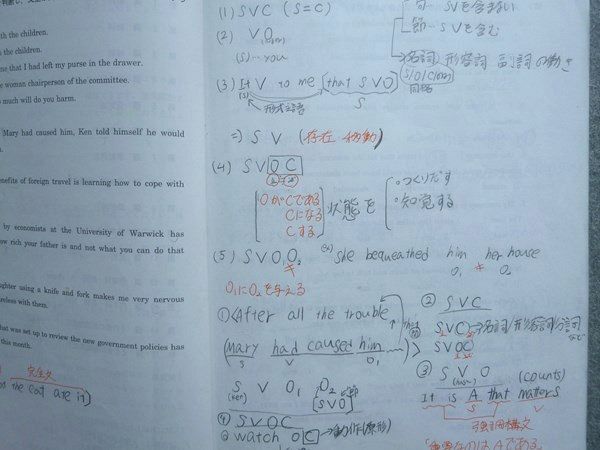 th the children.
the children.
me that I had left my purse in the drawer.
e woman chairperson of the committee.
s much will do you harm.
Mary had caused him, Ken told himself he would
nefits of foreign travel is learning how to cope with
by economists at the University of Warwick has
ow rich your father is and not what you can do that
ghter using a knife and fork makes me very nervous
areless with them.
that was set up to review the new government policies has
this month.
完全文
the cat are in)
(1) SVC (S=C)
句…SVを含まない
節…SVを含む
名詞/形容詞/副詞の働き
S/O/C/
(2) V O
(S)…you
(3) It V to me [that SVO]
(S)
形式主語
S
⇒) S V (存在・移動)
(4) SV OC
OがCである
Cになる
Cする
状態を
・つくりだす
・知覚する
(5) SVO₁O₂
(ex) She bequeathed him her house
O₁ ≠ O₂
O₁にO₂を与える
① <After all the trouble
(Mary had caused him)>
S V O₁
S V O₁ O₂
(Ken)
[SVO]
② SVC
SVC→名詞/形容詞/分詞
SVOC
③ S V O
(counts)
It is A that matters
S V
強調構文
④ SVOC
watch O C→動作(原形)